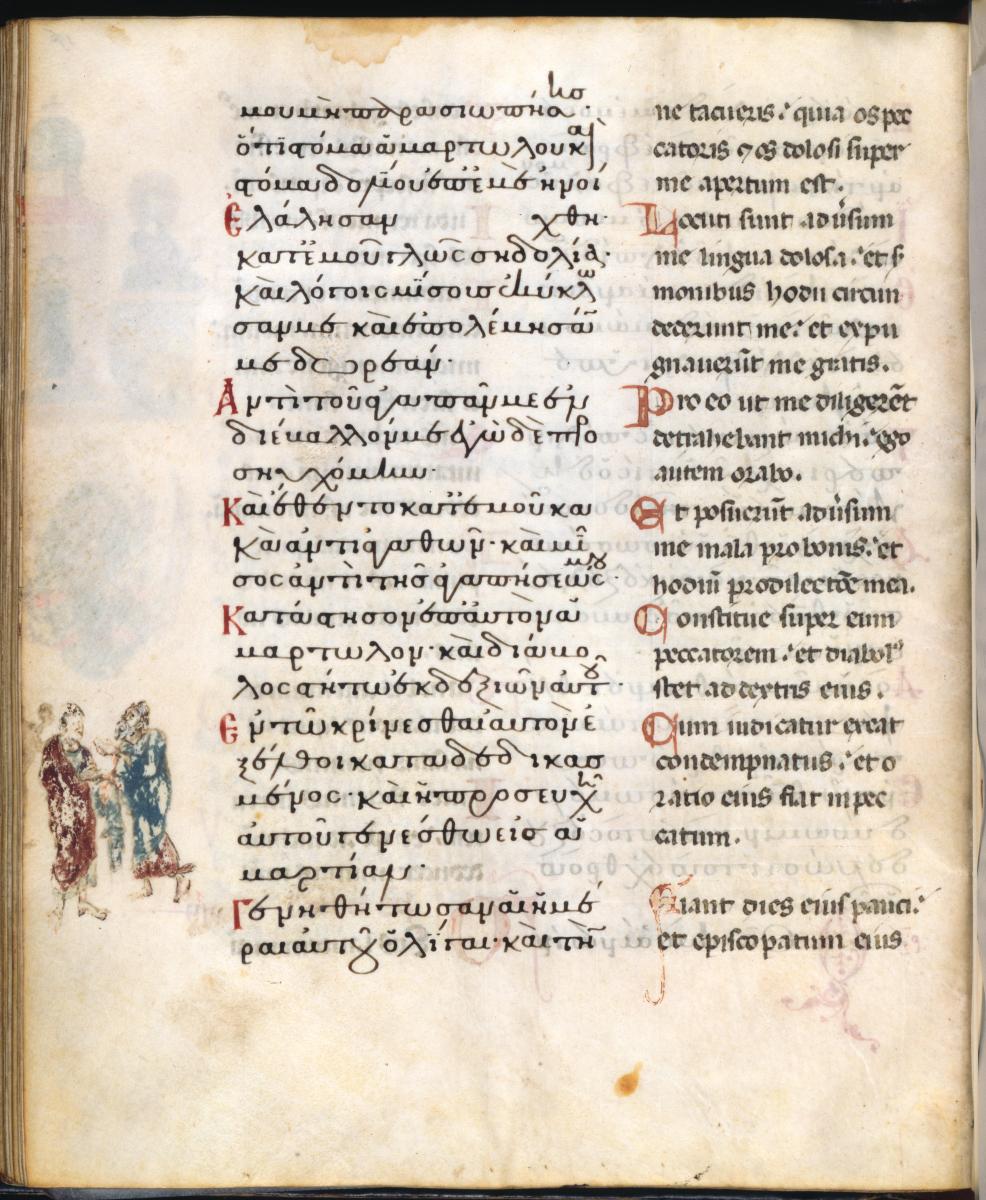 μουμὴπαρασιωπήσ
ὅτιστόμαἁμαρτωλοῦκαὶ
στόμαδολίουἐπεμὲἠνοί
Ἐλάλησαν χθη·
κατεμοῦγλώσσηδολία·
καὶλόγοιςμίσουςἐκύκλω
σάνμε καὶἐπολέμησάν
με δωρεάν·
Ἀντὶτοῦἀγαπᾶνμεἐν
διέβαλλόνμε ἐγὼδὲπρο
σηυχόμην·
Καὶἔθεντοκατἐμοῦκα
κὰἀντὶἀγαθῶν· καὶμῖ
σοςἀντὶτῆςἀγαπήσεώςμου·
Κατάστησονἐπαὐτὸνἁ
μαρτωλον· καὶδιάβο
λοςστήτωἐκδεξιῶναὐτοῦ·
Ἐντῶκρίνεσθαιαὐτὸνἐ
ξέλθοικαταδεδικασ
μένος· καὶἡπροσευχὴ
αὐτοῦγενέσθωεἰς ἁ
μαρτίαν·
Γενηθήτωσαναἱἡμέ
ραιαὐτοῦὀλίγαι· καὶτὴν
ne tacueris: quia os pec
catoris ⁊ os dolosi super
me apertum est.
Locuti sunt aduersum
me lingua dolosa: et ser
monibus hodii circun
dederunt me: et expu
gnauerūt me gratis.
Pro eo ut me diligerēt
detrahebant michi: ego
autem orabo.
Et posuerūt aduersum
me mala pro bonis: et
hodiū pro dilectōe mea.
Constitue super eum
peccatorem: et diabolꝰ
stet ad dextris eius.
Cum iudicatur exeat
condempnatus: et o
ratio eius fiat in pec
catum.
Fiant dies eius pauci:
et episcopatum eius